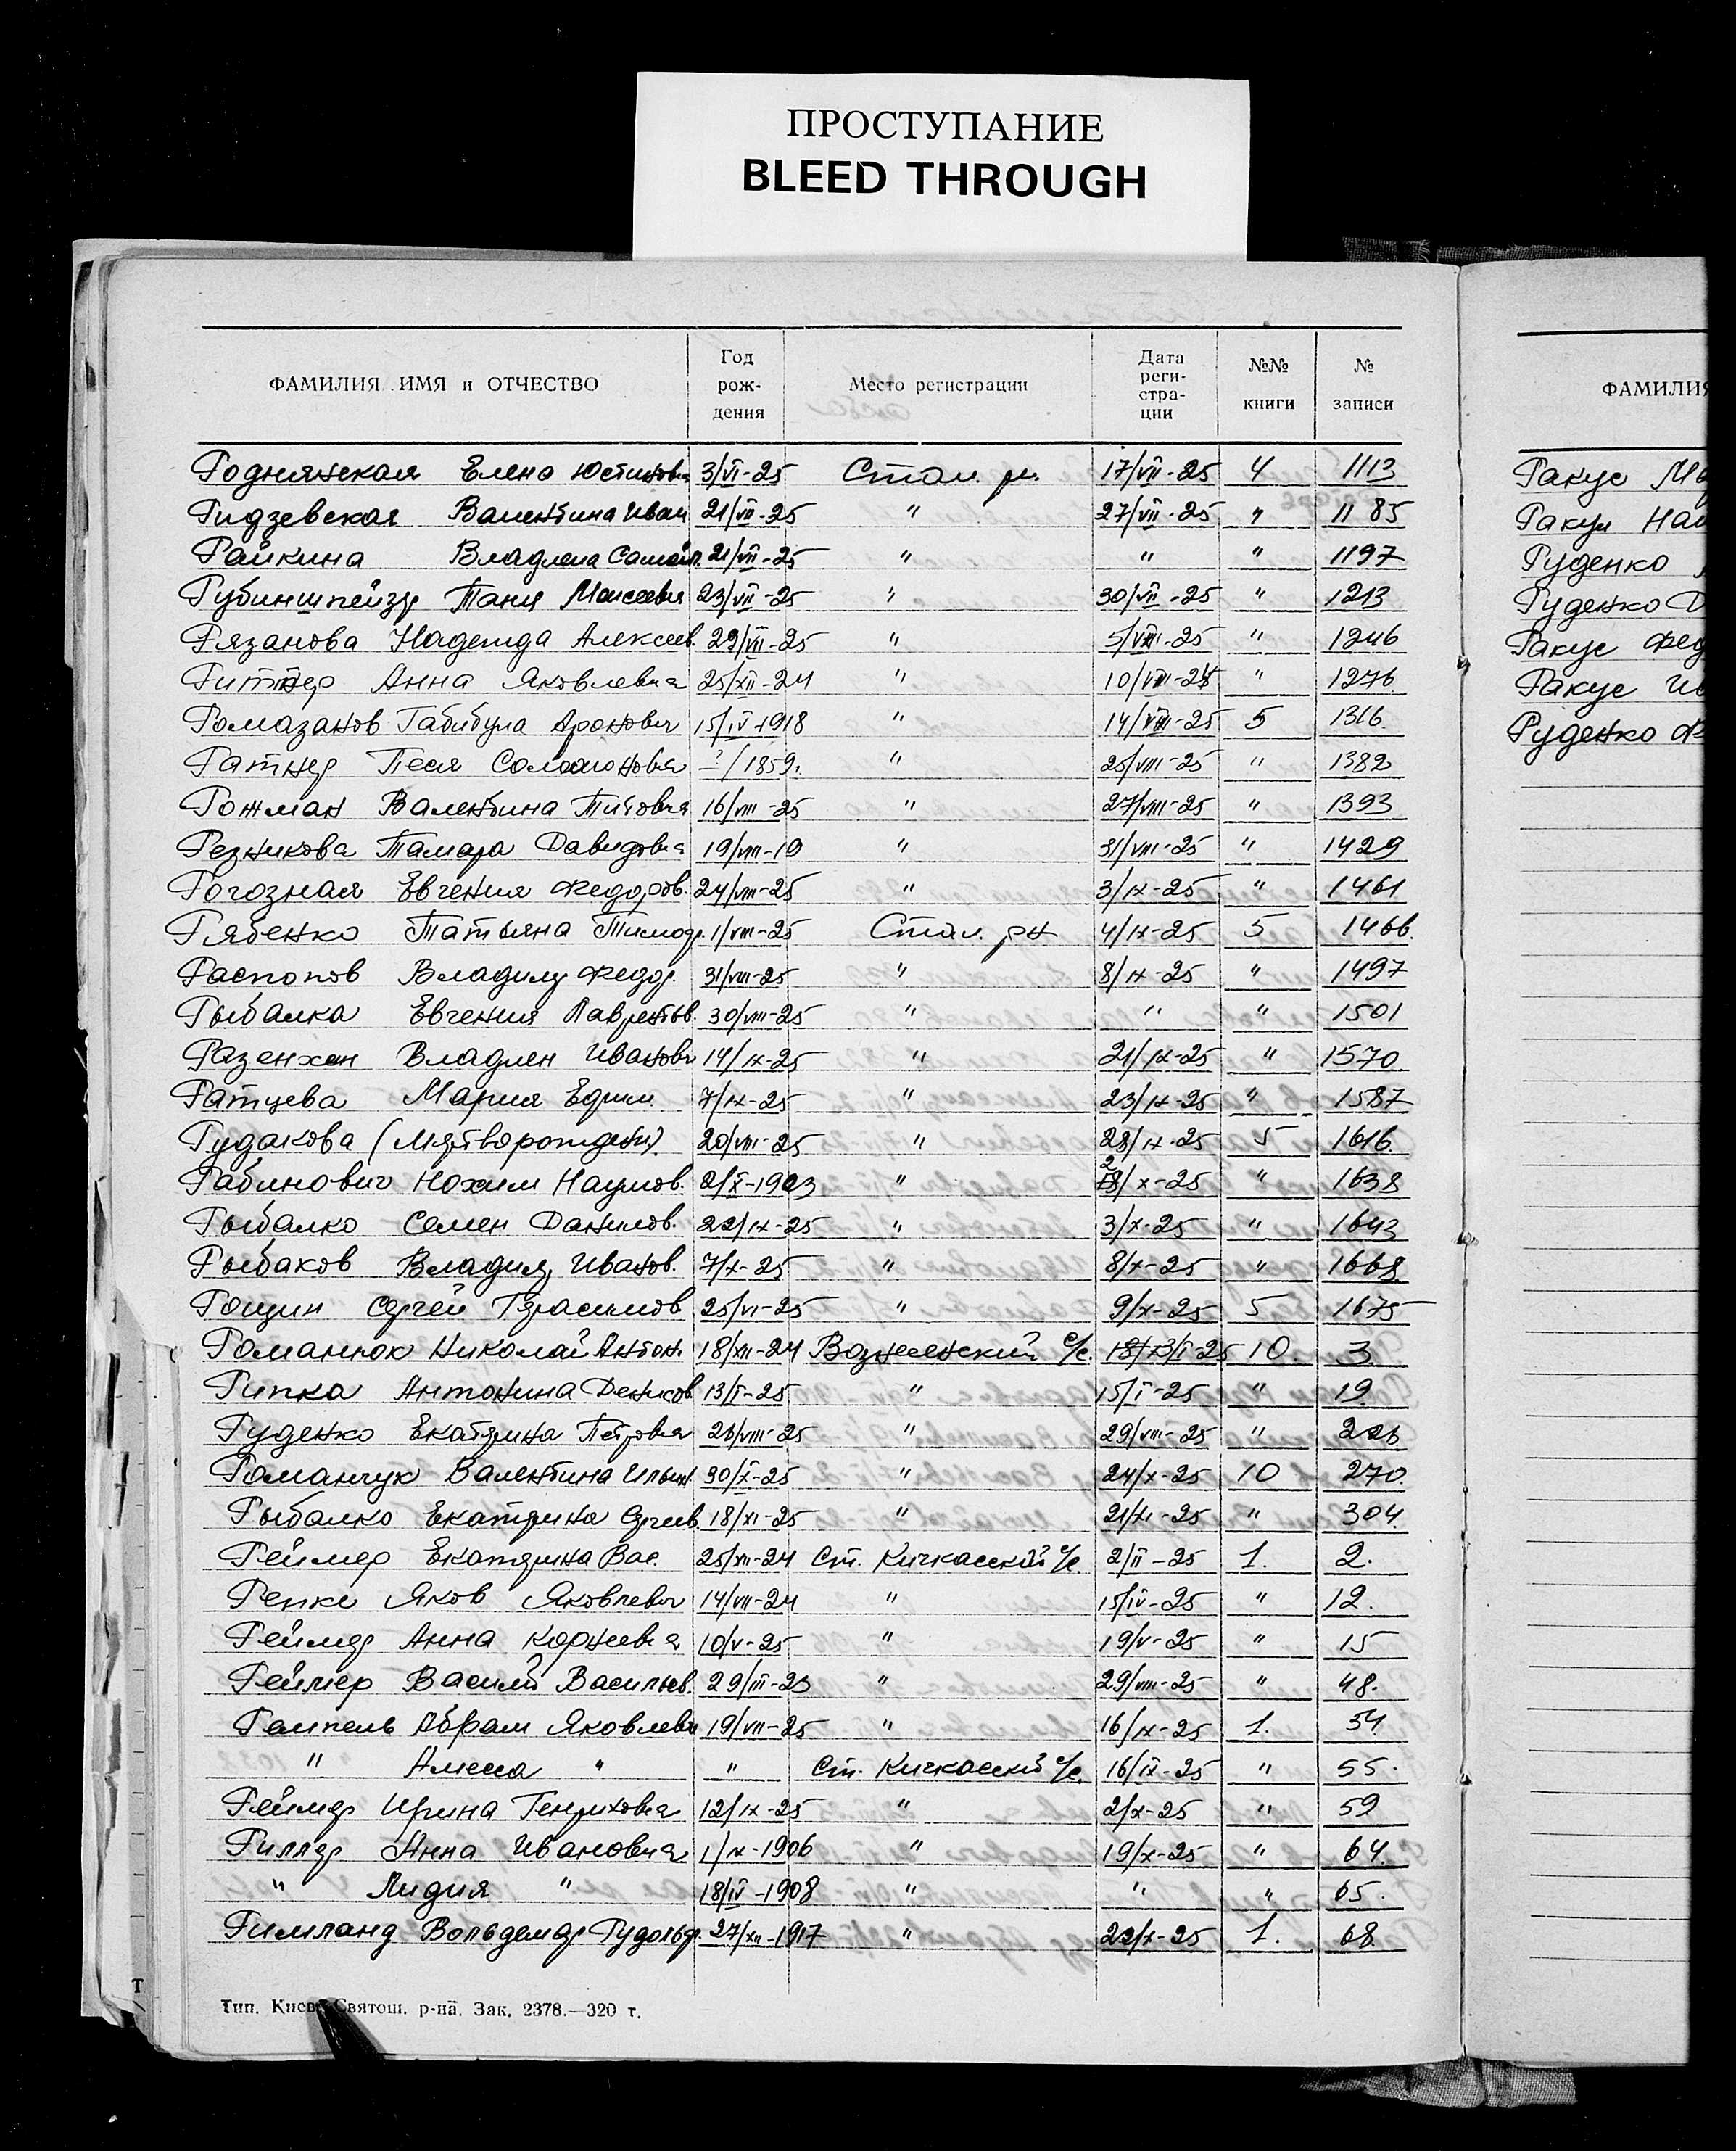 ПРОСТУПАНИЕ
BLEED THROUGH
ФАМИЛИЯ ИМЯ и ОТЧЕСТВО Год рож-дения Место регистрации Дата реги-стра-ции №№ книги № записи
Роднянская Елена Юстиновна 3/VI-25 Стал. р. 17/VII-25 4 1113
Ридзевская Валентина Иван 21/VII-25 " 27/VII-25 " 1185
Райкина Владлена Самойл. 21/VII-25 " " " 1197
Рубинштейзер Таня Моисеевна 23/VII-25 " 30/VII-25 " 1213
Рязанова Надежда Алексеев. 29/VII-25 " 5/VIII-25 " 1246
Риттнер Анна Яковлевна 25/XII-24 " 10/VIII-25 " 1276
Ромазанов Габибула Аронович 15/IV-1918 " 14/VIII-25 5 1316.
Ратнер Песя Соломоновна -?/1859. " 25/VIII-25 " 1382
Рожман Валентина Титовна 16/VIII-25 " 27/VIII-25 " 1393
Резникова Тамара Давидовна 19/VIII-19 " 31/VIII-25 " 1429
Рогозная Евгения Федоров. 24/VIII-25 " 3/IX-25 " 1461
Рябенко Татьяна Тимоф. 1/VIII-25 Стал. рн 4/IX-25 5 1466.
Распопов Владимир Федор. 31/VIII-25 " 8/IX-25 " 1497
Рыбалка Евгения Лаврентьев. 30/VIII-25 " " " 1501
Разенхен Владлен Иванович 14/IX-25 " 21/IX-25 " 1570
Ратцева Мария Ефим. 7/IX-25 " 23/IX-25 " 1587
Рудакова (Мертворожден.) 20/VIII-25 " 28/IX-25 5 1616.
Рабинович Нохим Наумов. 2/X-1903 " 2/X-25 " 1638
Рыбалко Семен Данилов. 22/IX-25 " 3/X-25 " 1643
Рыбаков Владимир Иванов. 7/X-25 " 8/X-25 " 1668
Рощин Сергей Герасимов. 25/VI-25 " 9/X-25 5 1675
Романюк Николай Антон. 18/XII-24 Вознесенский с/с. 13/I-25 10. 3.
Рипка Антонина Денисов. 13/I-25 " 15/I-25 " 19.
Руденко Екатерина Петровна 26/VIII-25 " 29/VIII-25 " 226
Романчук Валентина Ильин. 30/X-25 " 24/X-25 10 270.
Рыбалко Екатерина Сергеев. 18/XI-25 " 21/XI-25 " 304.
Реймер Екатерина Вас. 25/XII-24 Ст. Кичкасский с/с. 2/II-25 1. 2.
Репке Яков Яковлевич 14/VII-24 " 15/IV-25 " 12.
Реймер Анна Корнеевна 10/V-25 " 19/V-25 " 15
Реймер Василий Васильев. 29/III-23 " 29/VIII-25 " 48.
Ремпель Абрам Яковлевич 19/VII-25 " 16/IX-25 1. 54
" " " Ст. Кичкасский с/с. 16/IX-25 " 55.
Реймер Ирина Генриховна 12/IX-25 " 2/X-25 " 59
Риллер Анна Ивановна 1/IX-1906 " 19/X-25 " 64.
" Лидия " 18/IV-1908 " " " 65.
Римланд Вольдемар Рудольф. 27/XII-1917 " 22/X-25 1. 68.
Тип. Киев, Святош. р-на. Зак. 2378.—320 т.
ФАМИЛИЯ
Ракус
Ракул
Руденко
Руденко
Ракус Фед
Ракус
Руденко